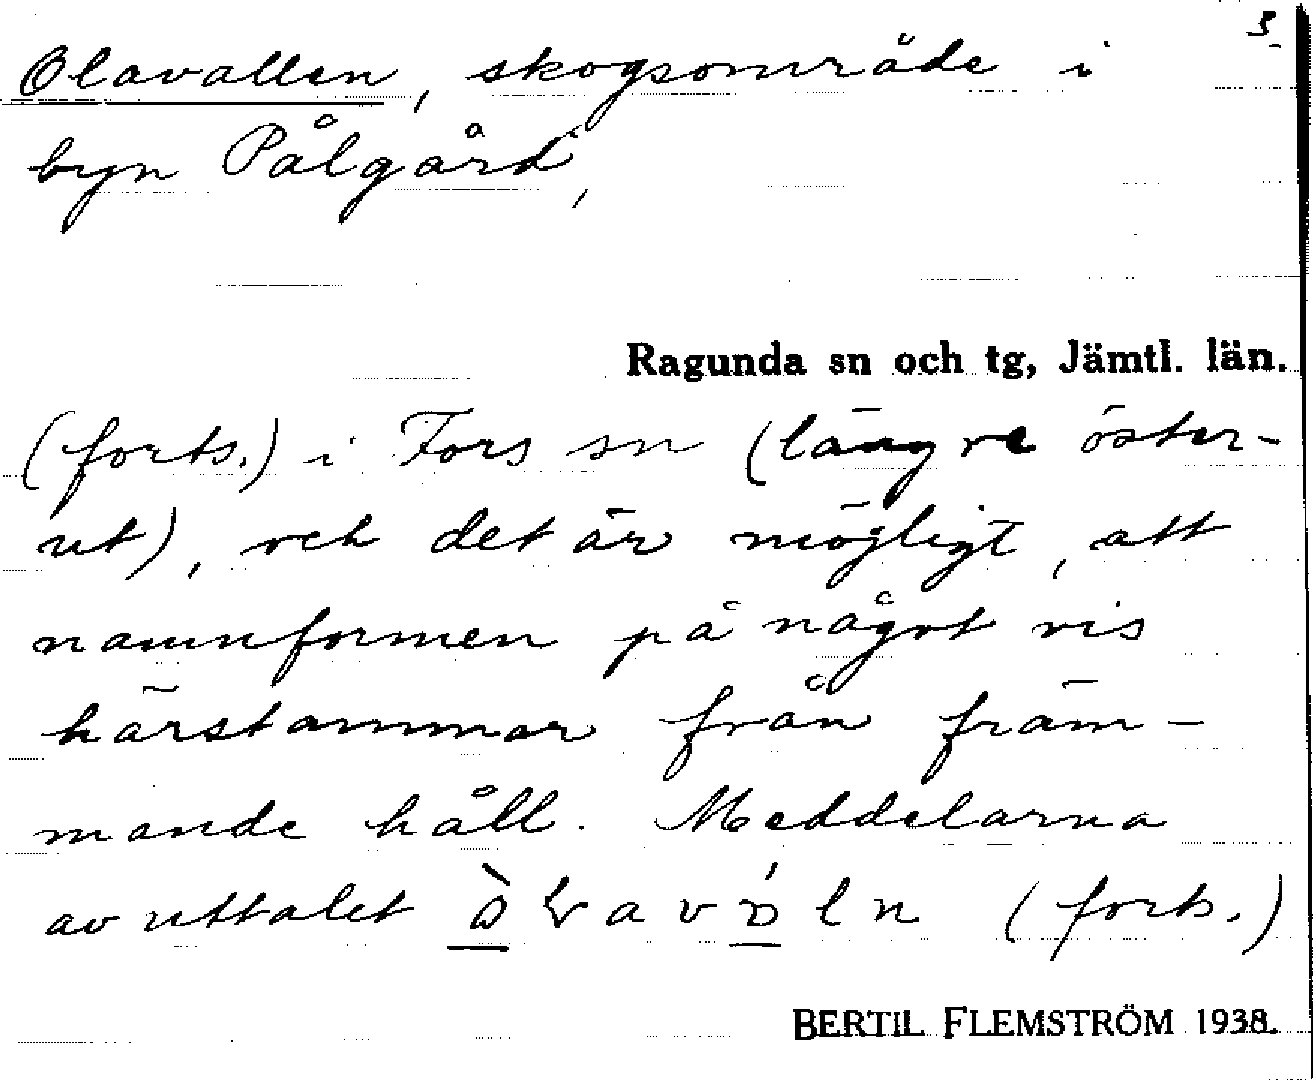 3.
Olavallen, skogsområde i
byn Pålgård,
Ragunda sn och tg, Jämtl. län.
(forts.) i Fors sn (längre öster-
ut), och det är möjligt, att
namnformen på något vis
härstammar från främ-
mande håll. Meddelarna
av uttalet
(forts.)
BERTIL FLEMSTRÖM 1938.